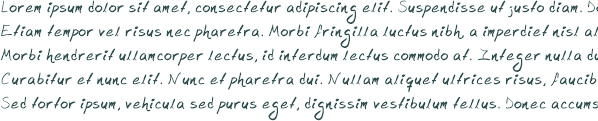 Lorem ipsum dolor sit amet, consectetur adipiscing elit. Suspendisse ut justo diam. Do
Etiam tempor vel risus nec pharetra. Morbi fringilla luctus nibh, a imperdiet nisl al
Morbi hendrerit ullamcorper lectus, id interdum lectus commodo at. Integer nulla du
Curabitur et nunc elit. Nunc et pharetra dui. Nullam aliquet ultrices risus, faucib
Sed tortor ipsum, vehicula sed purus eget, dignissim vestibulum tellus. Donec accums